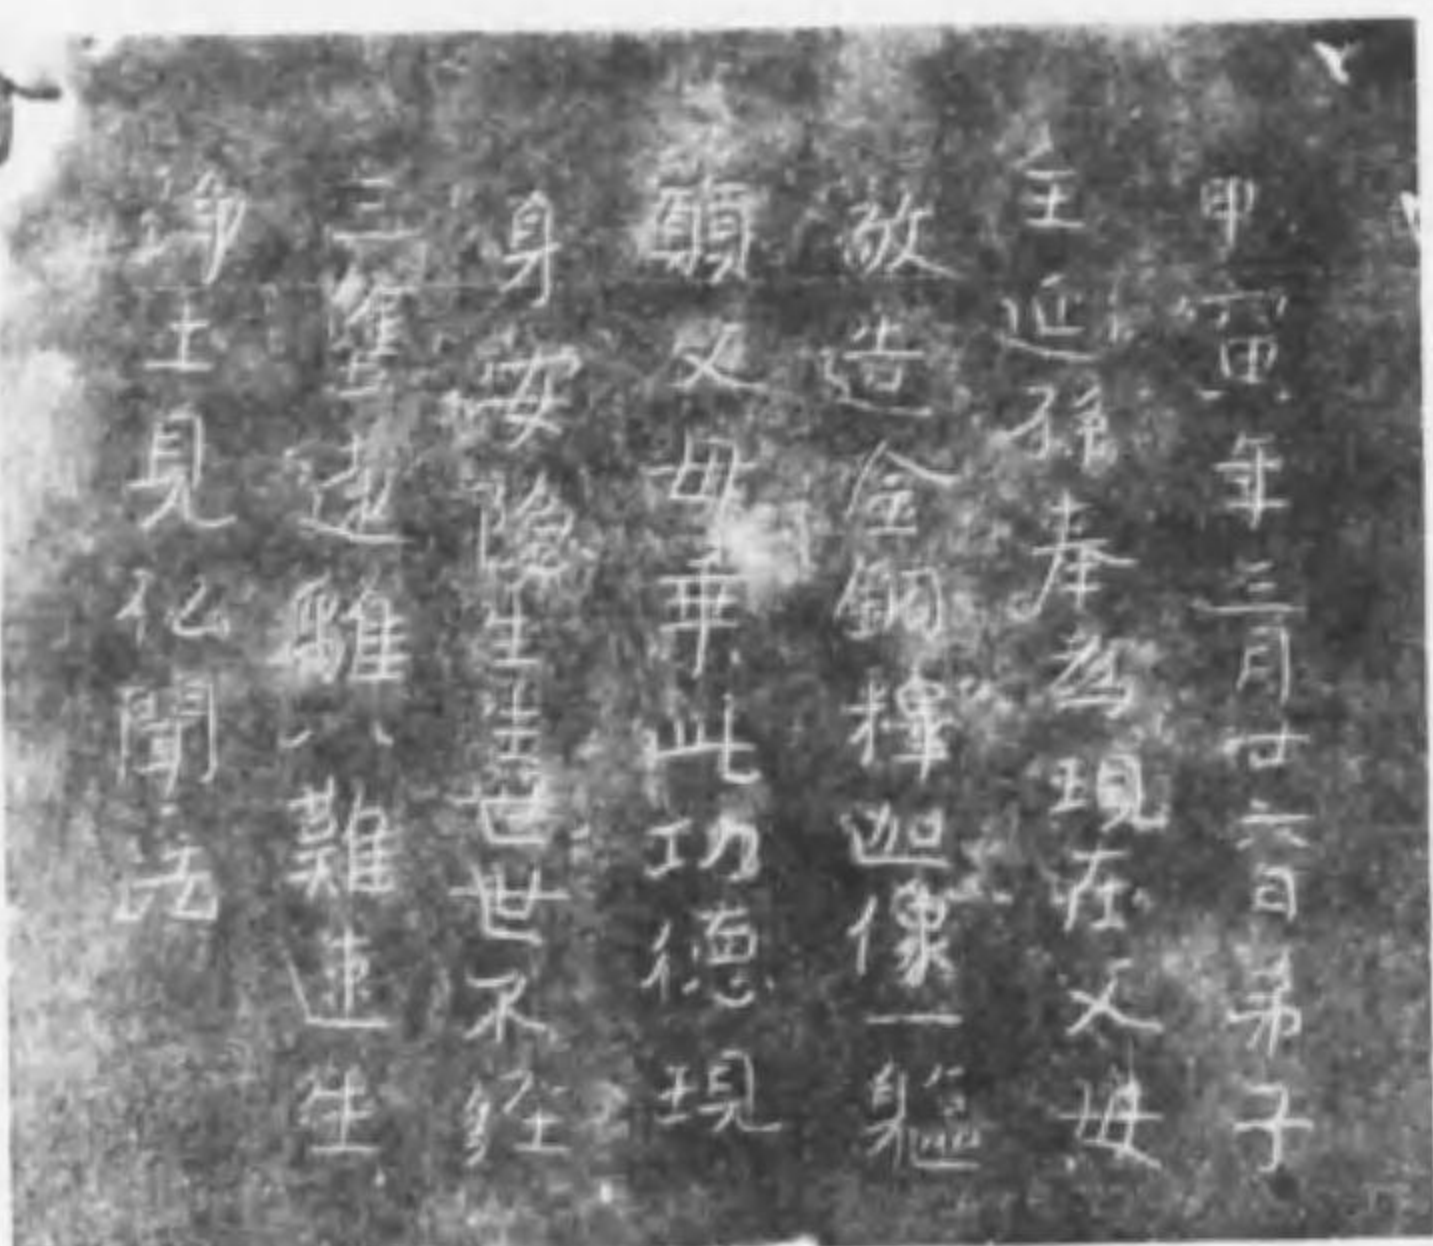 甲寅年三月廿六日弟子
王延孫奉為現在父母
敬造金銅釋迦像一軀
願父母乘此功徳現
身安隠生生世世不経
三塗遠離八難速生
浄土見仏聞法